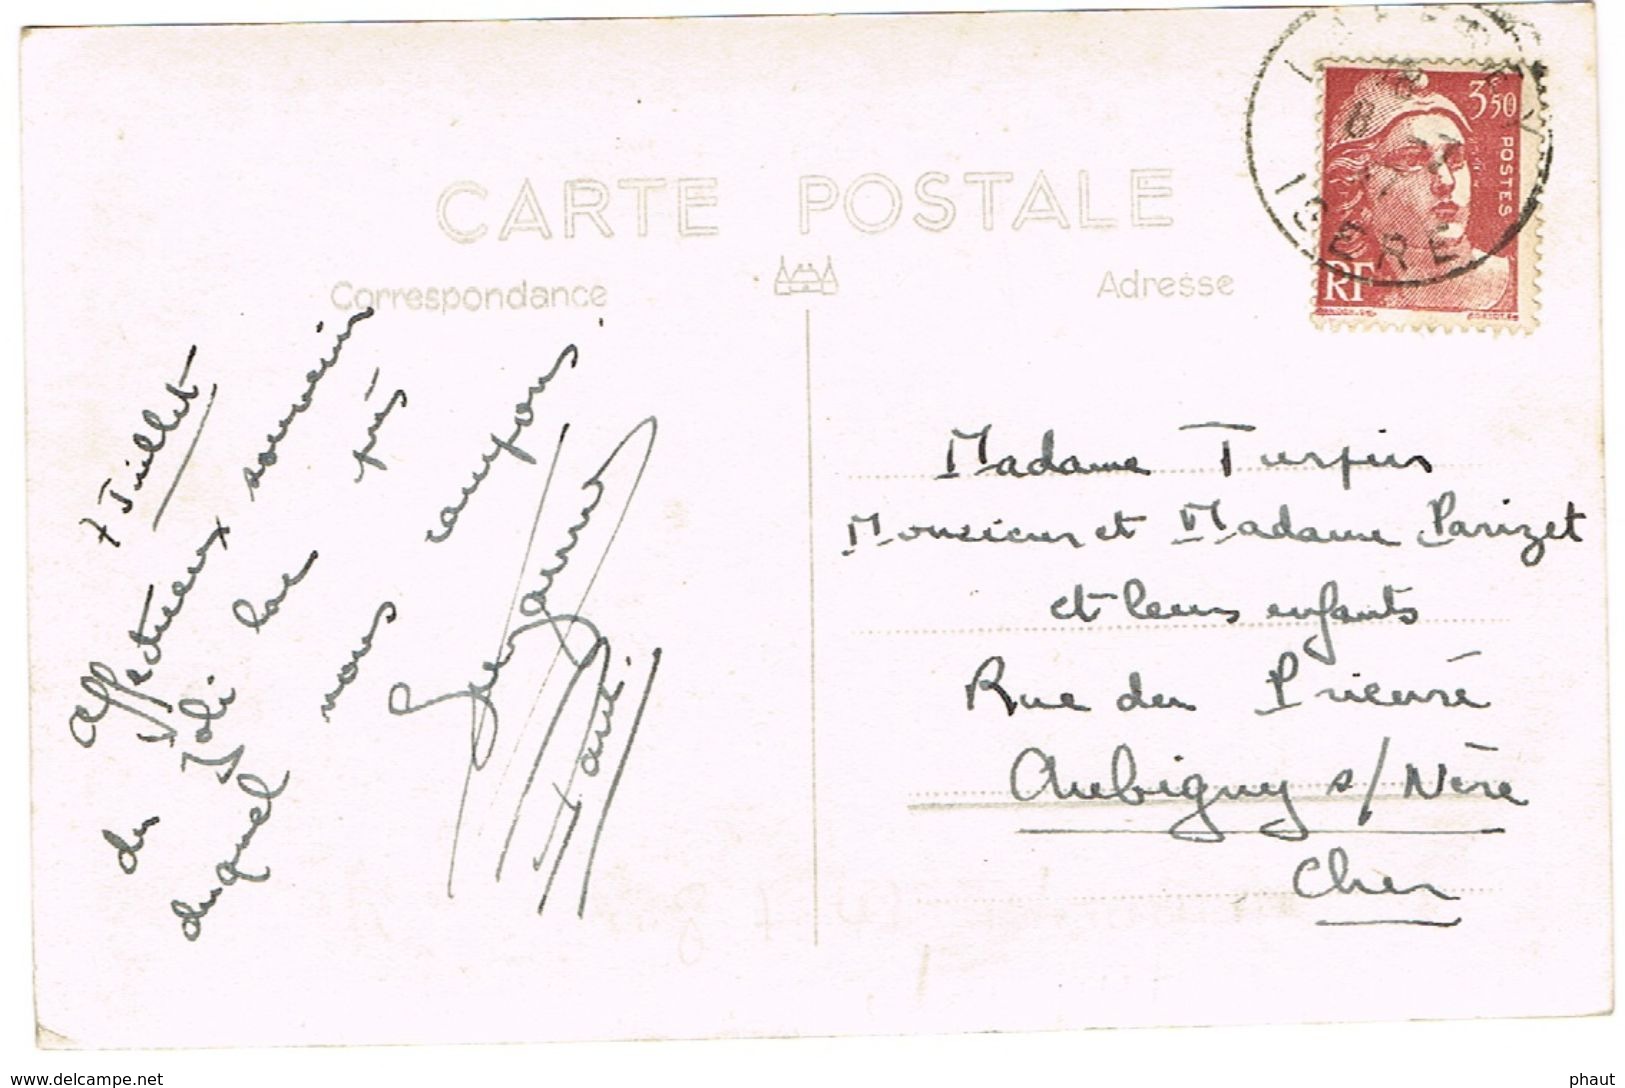 CARTE POSTALE
Correspondance
Adresse
3,50
POSTES
RF
ISERE
7 Juillet
Affectueux souvenirs
du Joli lac près
duquel nous campons.
Madame Turpin
Monsieur et Madame Parizet
et leurs enfants
Rue du Prieuré
Aubigny s/Nère
Cher
www.delcampe.net
phaut